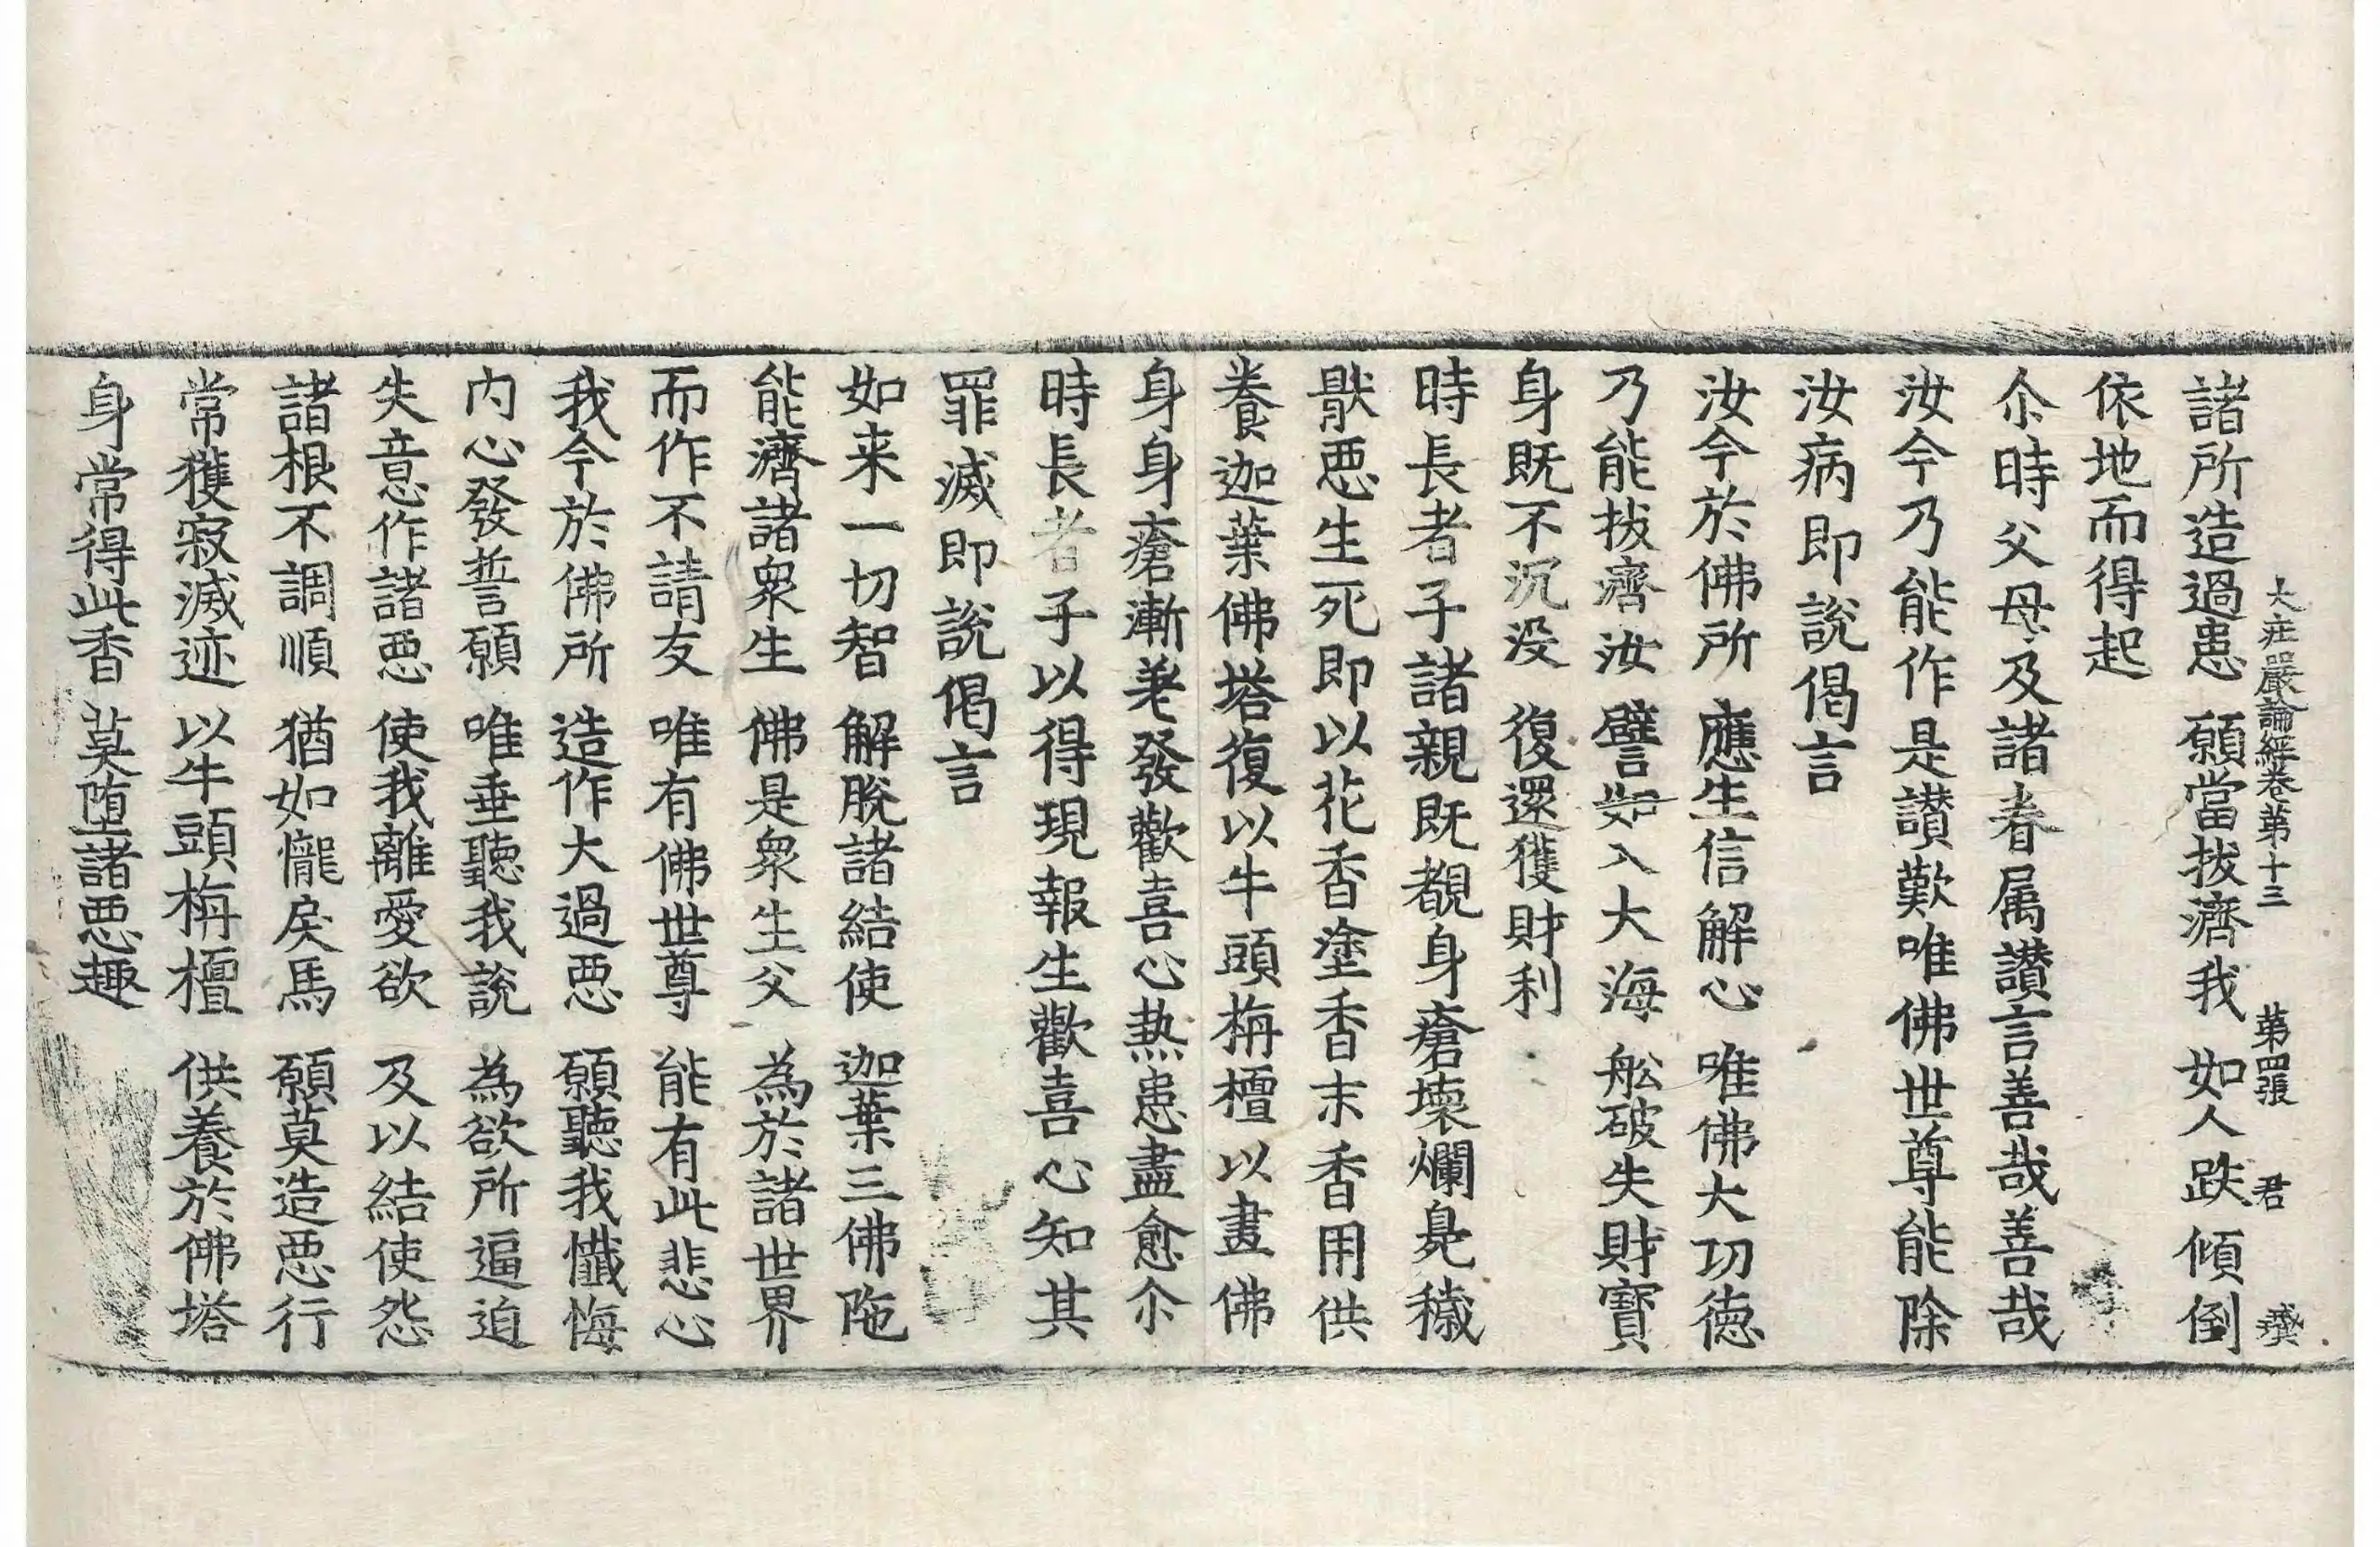 大庄嚴論經卷第十三 第四張 君
諸所造過患 願當拔濟我 如人跌傾倒
依地而得起
尒時父母及諸眷属讃言善哉善哉
汝今乃能作是讃歎唯佛世尊能除
汝病即說偈言
汝今於佛所 應生信解心 唯佛大功德
乃能拔濟汝 譬如入大海 舩破失財寶
身既不沉没 復還獲財利
時長者子諸親既覩身瘡壞爛臰穢
猒惡生死即以花香塗香末香用供
養迦葉佛塔復以牛頭栴檀以畫佛
身身瘡漸差發歡喜心熱患盡愈尒
時長者子以得現報生歡喜心知其
罪滅即說偈言
如来一切智 解脫諸結使 迦葉三佛陁
能濟諸衆生 佛是衆生父 為於諸世界
而作不請友 唯有佛世尊 能有此悲心
我今於佛所 造作大過惡 願聽我懺悔
内心發誓願 唯垂聽我說 為欲所逼迫
失意作諸惡 使我離愛欲 及以結使怨
諸根不調順 猶如㦬戾馬 願莫造惡行
常獲寂滅迹 以牛頭栴檀 供養於佛塔
身常得此香 莫堕諸惡趣